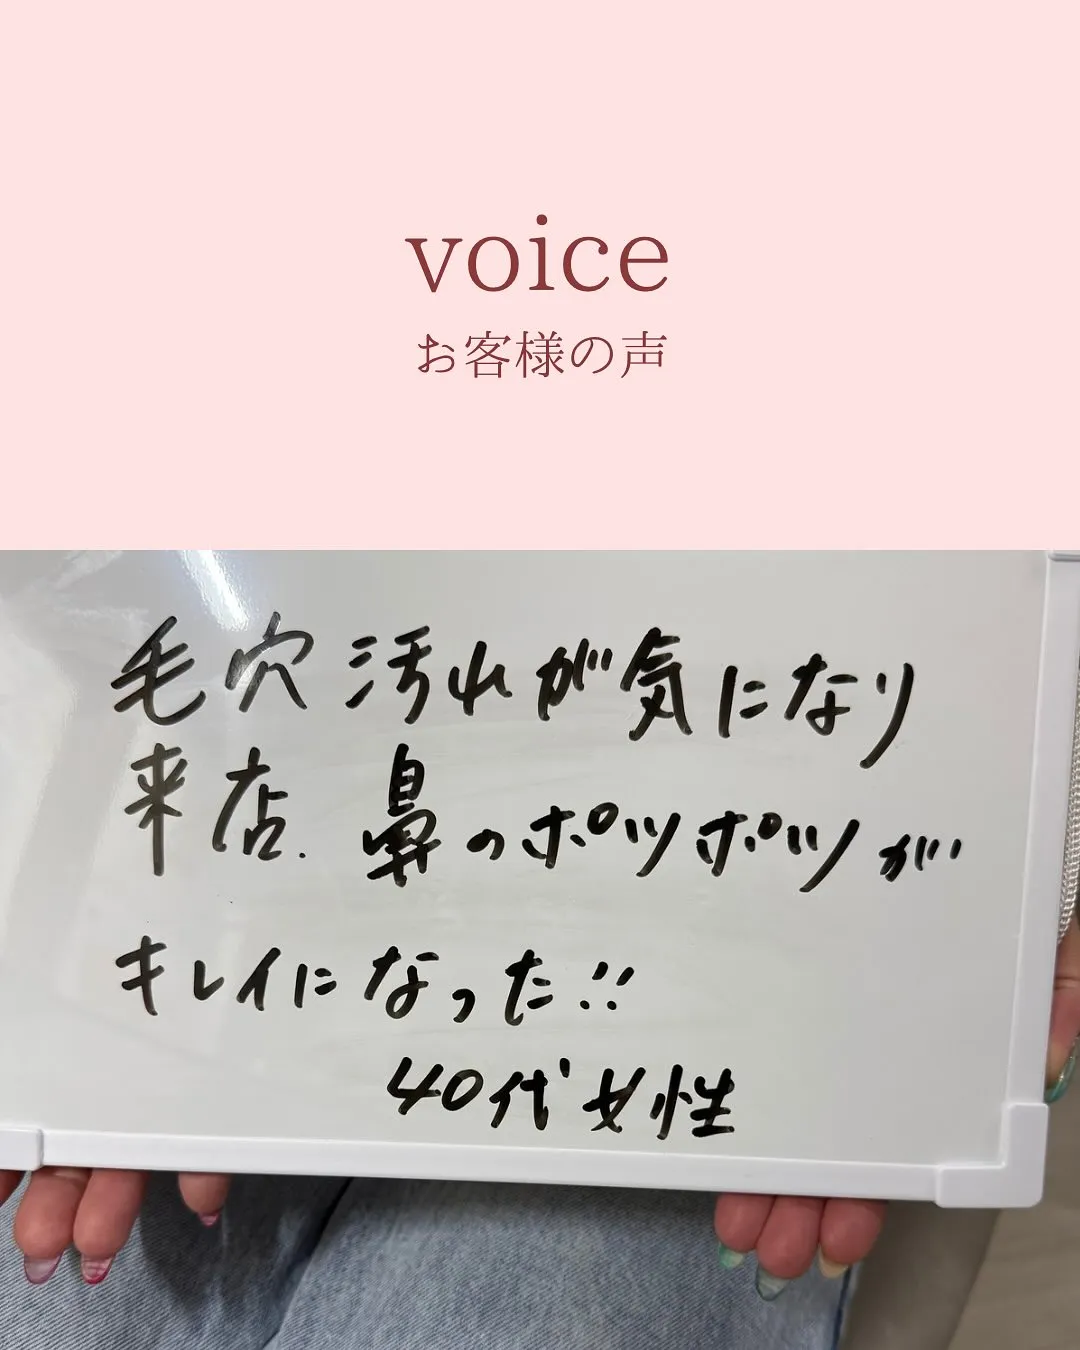 voice
お客様の声
毛穴汚れが気になり
来店.鼻のポツポツが
キレイになった!!
40代女性